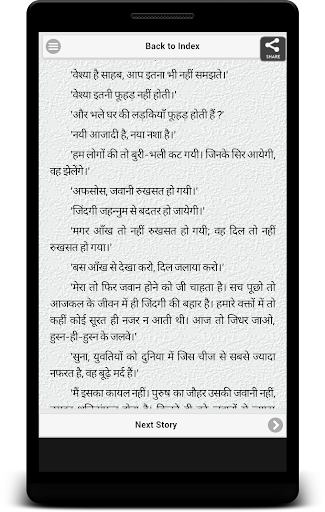 Back to Index
SHARE
'वेश्या है साहब, आप इतना भी नहीं समझते।'
'वेश्या इतनी फूहड़ नहीं होती।'
'और भले घर की लड़कियाँ फूहड़ होती हैं ?'
'नयी आजादी है, नया नशा है।'
'हम लोगों की तो बुरी-भली कट गयी। जिनके सिर आयेगी,
वह झेलेंगे।'
'अफसोस, जवानी रुखसत हो गयी।'
'जिंदगी जहन्नुम से बदतर हो जायेगी।'
'मगर आँख तो नहीं रुखसत हो गयी; वह दिल तो नहीं
रुखसत हो गया।'
'बस आँख से देखा करो, दिल जलाया करो।'
'मेरा तो फिर जवान होने को जी चाहता है। सच पूछो तो
आजकल के जीवन में ही जिंदगी की बहार है। हमारे वक्तों में तो
कहीं कोई सूरत ही नजर न आती थी। आज तो जिधर जाओ,
हुस्न-ही-हुस्न के जलवे।'
'सुना, युवतियों को दुनिया में जिस चीज से सबसे ज्यादा
नफरत है, वह बूढ़े मर्द हैं।'
'मैं इसका कायल नहीं। पुरुष का जौहर उसकी जवानी नहीं,
Next Story